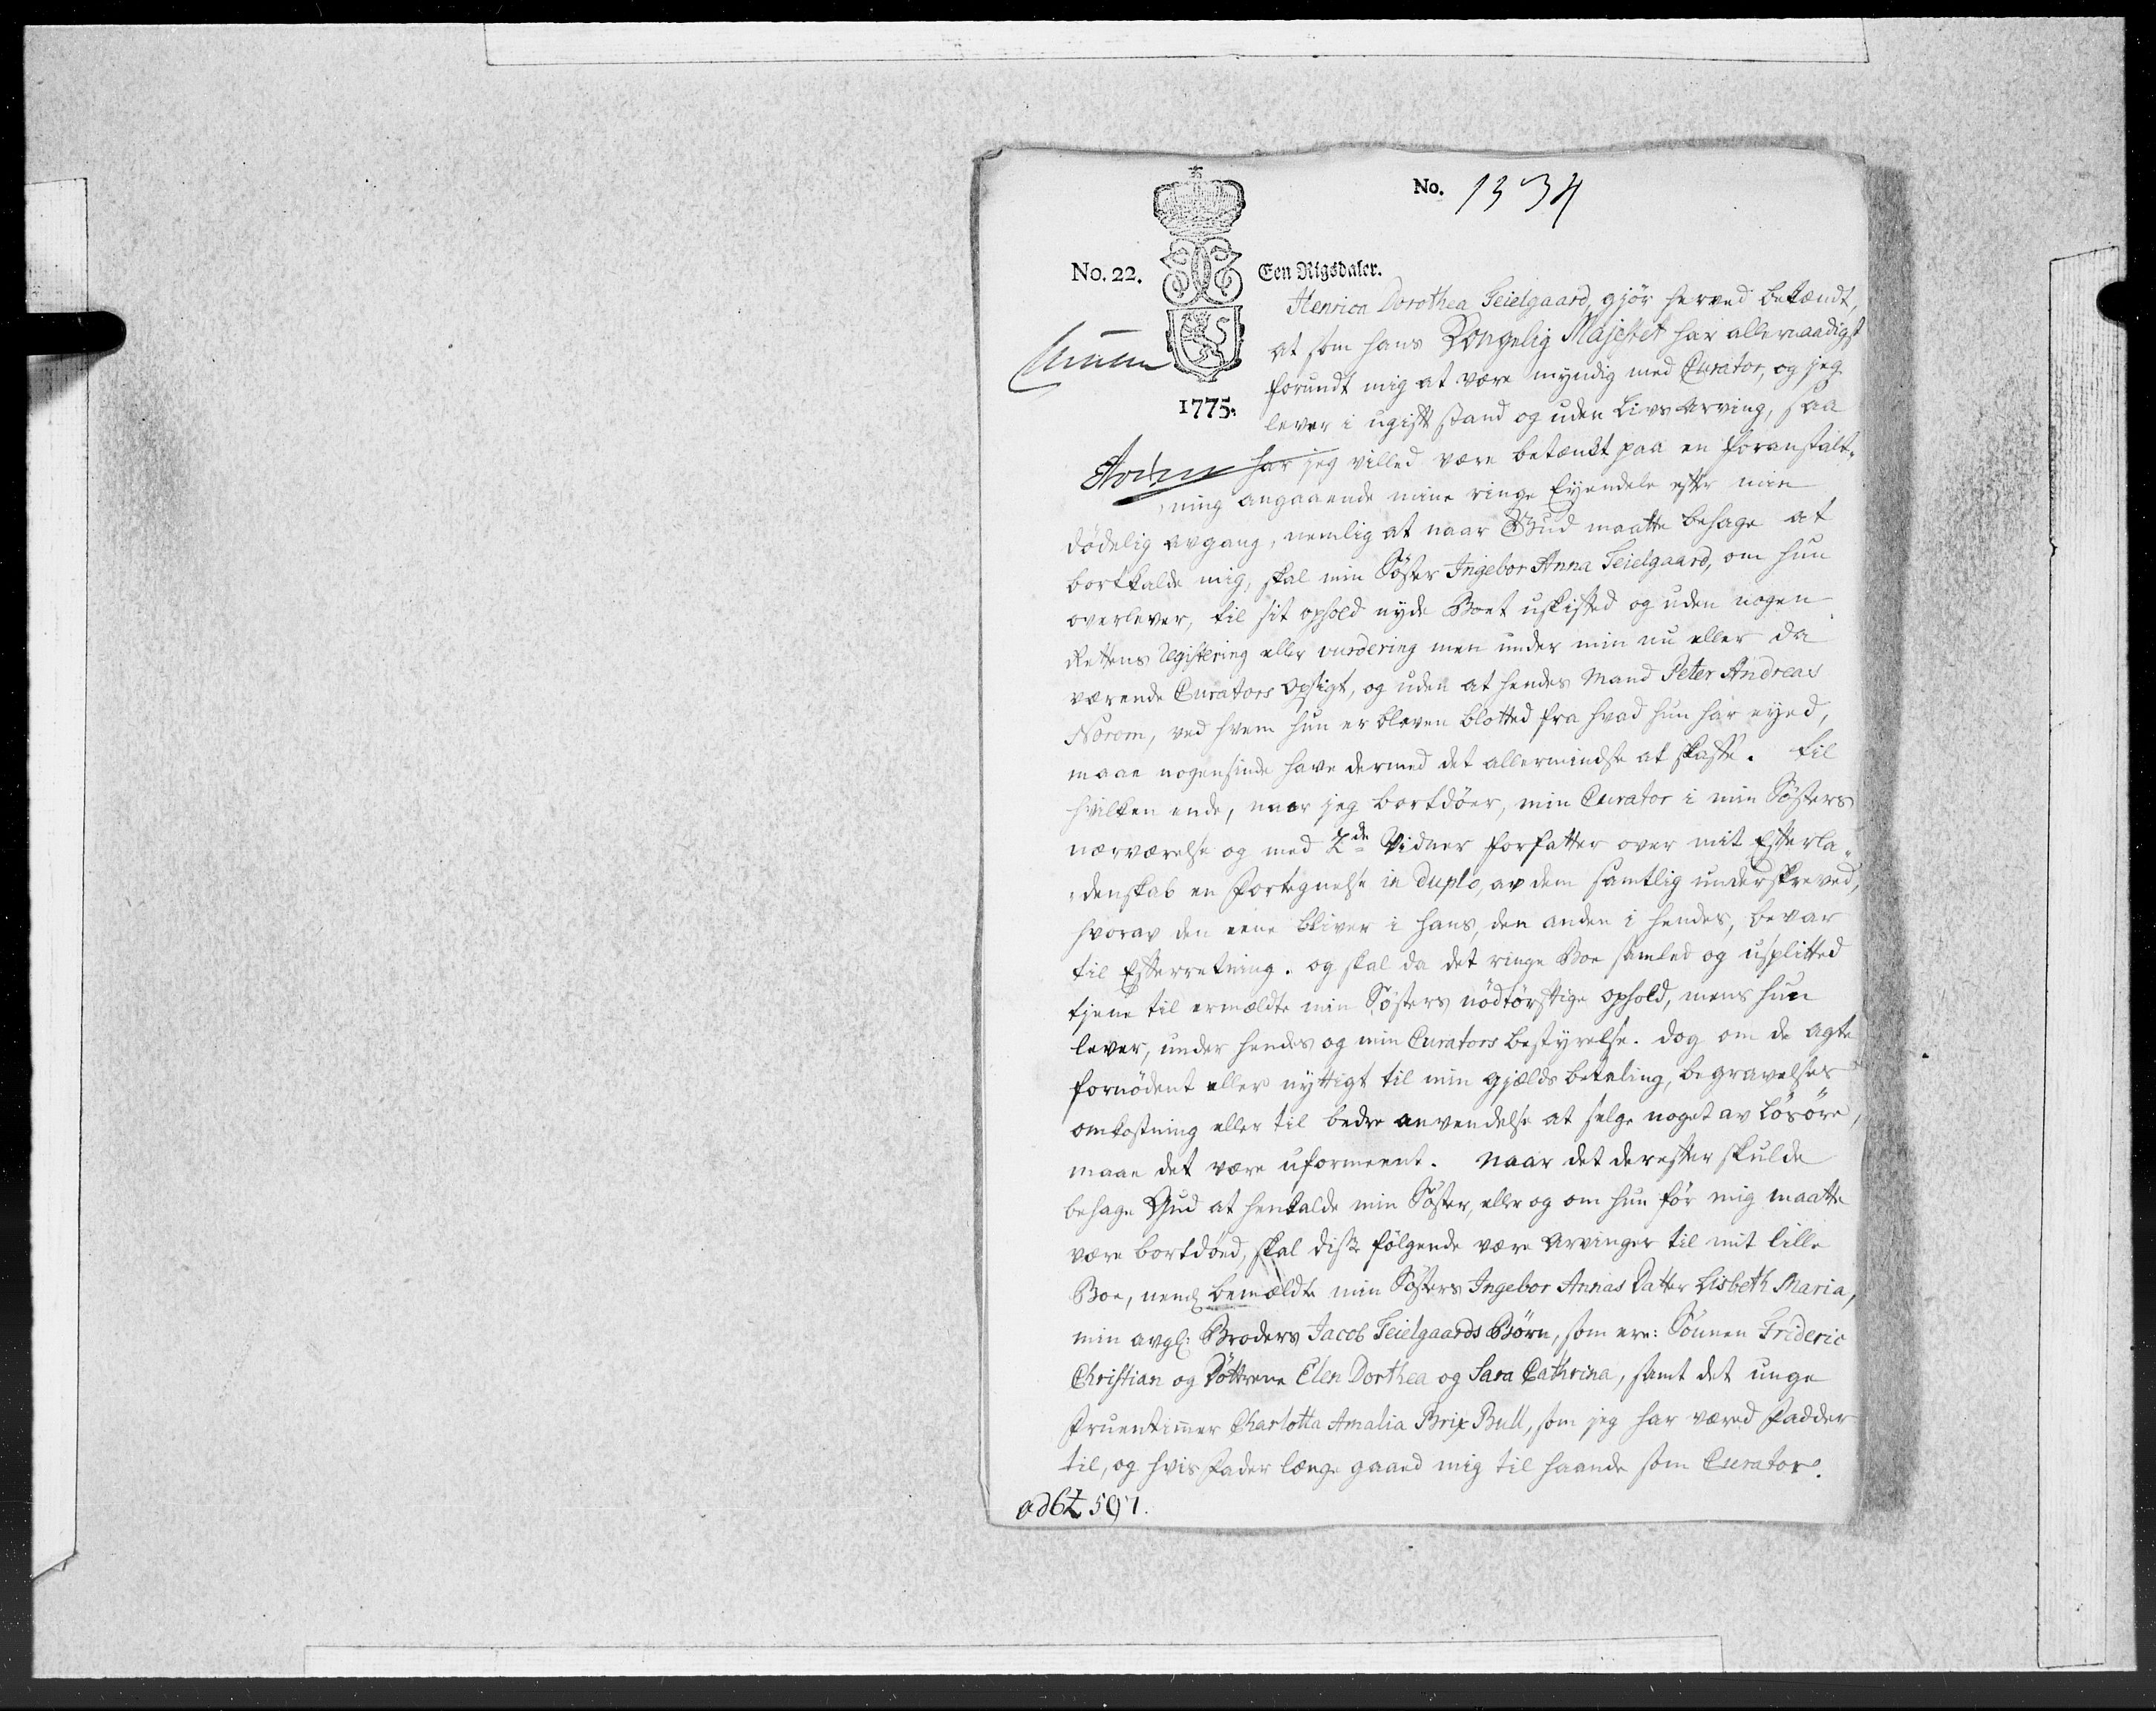 No. 1334
No. 22.
Een Rigsdaler.
1775.
Henrica Dorothea Teielgaard, gjör herved bekændt,
at som hans Kongelig Majestet har allernaadigst
forundt mig at være myndig med Curator, og jeg
lever i ugift stand og uden Livs Arving, saa
har jeg villed være betænkt paa en foranstalt-
ning angaaende mine ringe Eyendele efter min
dödelig avgang, nemlig at naar Gud maatte behage at
bortkalde mig, skal min Söster Ingebor Anna Teielgaard, om hun
overlever, til sit ophold nyde Boet uskifted og uden nogen
Rettens Registering eller vurdering men under min nu eller da
værende Curators Opsigt, og uden at hendes Mand Peter Andreas
Norom, ved hvem hun er bleven blotted fra hvad hun har eyed,
maae nogensinde have dermed det allermindste at skaffe. Til
hvilken ende, naar jeg bortdöer, min Curator i min Sösters
nærværelse og med 2de Vidner forfatter over mit Efterla-
denskab en Fortegnelse in duplo, av dem samtlig underskreved,
hvorav den eene bliver i hans, den anden i hendes, bevar
til Efterretning. og skal da det ringe Boe samled og usplitted
tjene til ermældte min Sösters nödtörftige ophold, mens hun
lever, under hendes og min Curators bestyrelse. dog om de agte
fornödent eller nyttigt til min gjælds betaling, begravelses
omkostning eller til bedre anvendelse at selge noget av Lösöre,
maae det være uformeent. Naar det derefter skulde
behage Gud at henkalde min Söster, eller og om hun för mig maatte
være bortdöed, skal disse fölgende være Arvinger til mit lille
Boe, neml: bemældte min Sösters Ingebor Annas Datter Lisbeth Maria,
min avgl: Broders Jacob Teielgaards Börn, som ere: Sönnen Frideric
Christian og Döttrene Elen Dorthea og Sara Cathrina, samt det unge
Fruentimer Charlotta Amalia Brix Bull, som jeg har væred Fadder
til, og hvis Fader længe gaaed mig til haande som Curator.
ad 62 597.